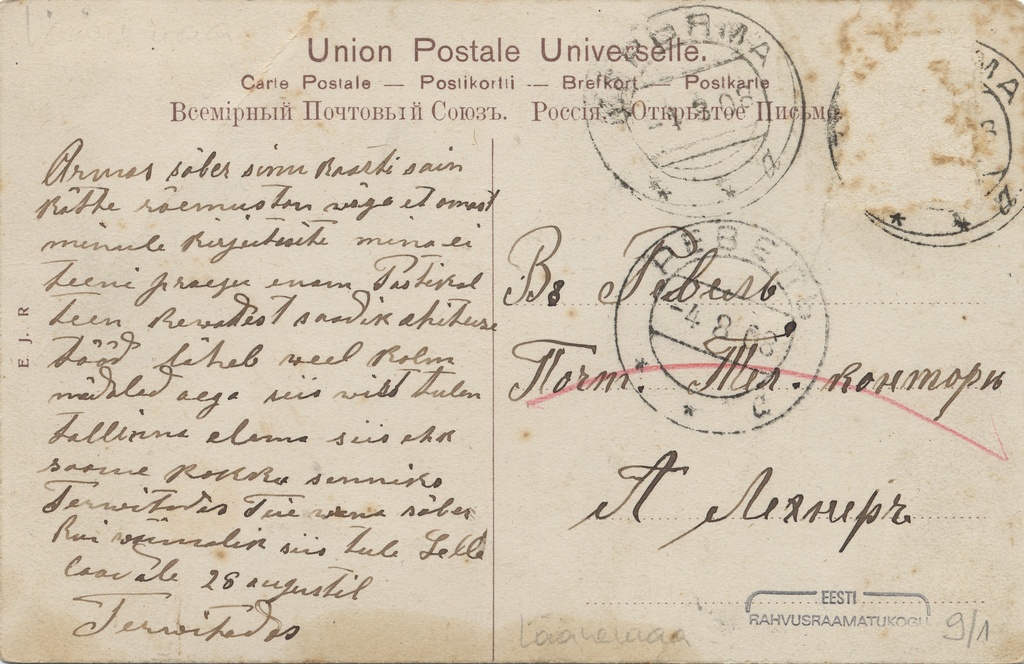 Union Postale Universelle.
Carte Postale — Postikortti — Brefkort — Postkarte
Всемірный Почтовый Союзъ. Россія. Открытое Письмо.
Armas sõber sinu kaarti sain
kätte rõemustan wäga et omast
minule kirjutasite mina ei
teeni praegu enam Postkal
teen Rewalist saadik ehituse
tööd läheb weel kolm
nädalad aega siis wist tulen
Tallinna elama siis ehk
saame kokku senniks
Terwitades Teie wana sõber
kui wõimalik siis tule Selle
28 augustil
Terwitades
E. J. R
РЕВЕЛЬ
-4 8 08
Въ Ревель
Почт. Тел. контора
А Лехнеръ
EESTI
RAHVUSRAAMATUKOGU
9/1
Läänemaa